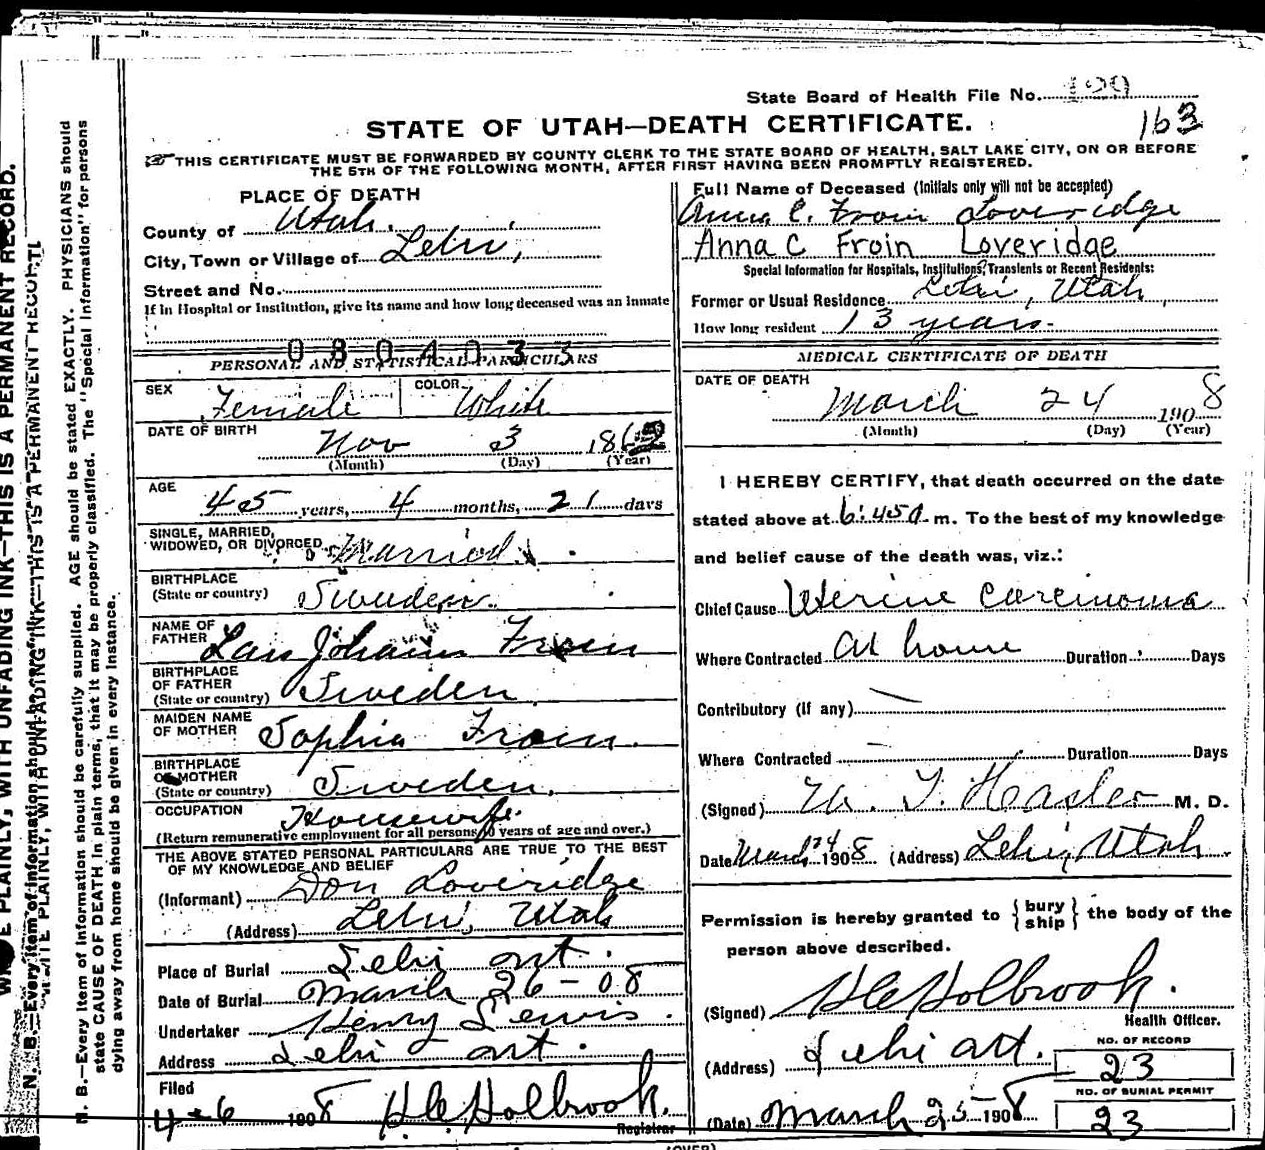 State Board of Health File No. 199
163
STATE OF UTAH—DEATH CERTIFICATE.
THIS CERTIFICATE MUST BE FORWARDED BY COUNTY CLERK TO THE STATE BOARD OF HEALTH, SALT LAKE CITY, ON OR BEFORE
THE 5TH OF THE FOLLOWING MONTH, AFTER FIRST HAVING BEEN PROMPTLY REGISTERED.
PLACE OF DEATH
County of Utah
City, Town or Village of Lehi,
Street and No.
If in Hospital or Institution, give its name and how long deceased was an inmate
0804033
PERSONAL AND STATISTICAL PARTICULARS
SEX Female COLOR White
DATE OF BIRTH Nov 3 186
(Month) (Day) (Year)
AGE 45 years, 4 months, 21 days
SINGLE, MARRIED,
WIDOWED, OR DIVORCED Married
BIRTHPLACE
(State or country) Sweden
NAME OF
FATHER Lars Johann Froin
BIRTHPLACE
OF FATHER
(State or country) Sweden
MAIDEN NAME
OF MOTHER Sophia Froin
BIRTHPLACE
OF MOTHER
(State or country) Sweden
OCCUPATION Housewife
(Return remunerative employment for all persons 10 years of age and over.)
THE ABOVE STATED PERSONAL PARTICULARS ARE TRUE TO THE BEST
OF MY KNOWLEDGE AND BELIEF
(Informant) Don Loveridge
(Address) Lehi, Utah
Place of Burial Lehi
Date of Burial March 26-08
Undertaker Henry Lewis
Address Lehi
Filed
4-6 1908 Registrar
Full Name of Deceased (Initials only will not be accepted)
Anna C. Froin Loveridge
Anna C Froin Loveridge
Special Information for Hospitals, Institutions, Transients or Recent Residents:
Former or Usual Residence Lehi, Utah,
How long resident 13 years.
MEDICAL CERTIFICATE OF DEATH
DATE OF DEATH
March 24 1908
(Month) (Day) (Year)
I HEREBY CERTIFY, that death occurred on the date
stated above at 6:45 m. To the best of my knowledge
and belief cause of the death was, viz.:
Chief Cause Uterine Carcinoma
Where Contracted At home Duration Days
Contributory (if any)
Where Contracted Duration Days
(Signed) M. D.
Date March 24 1908 (Address) Lehi, Utah
Permission is hereby granted to {bury ship} the body of the
person above described.
(Signed) Holbrook.
Health Officer.
(Address) Lehi
NO. OF RECORD
23
NO. OF BURIAL PERMIT
23
(Date) March 25 1908
(OVER)
N. B.—Every item of information should be carefully supplied. AGE should be stated EXACTLY. PHYSICIANS should
state CAUSE OF DEATH in plain terms, that it may be properly classified. The "Special Information" for persons
dying away from home should be given in every instance.
PLAINLY, WITH UNFADING INK—THIS IS A PERMANENT RECORD.